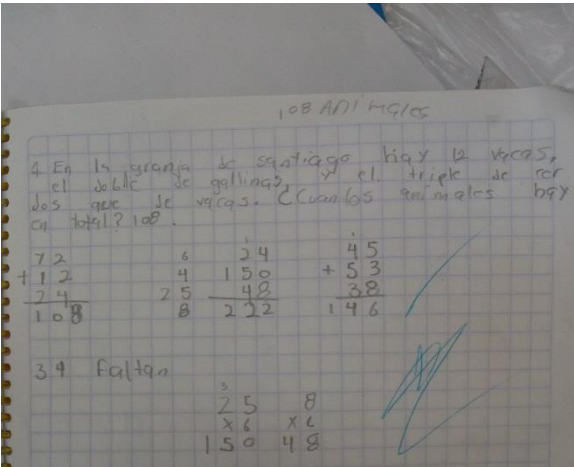 108 ANIMALES
4 En la granja de santiago hay 12 vacas,
el doble de gallinas y el triple de cer
dos que de vacas. ¿Cuantos animales hay
en total? 108.
72 6 1 24 1 45
+12 4 150 + 53
24 25 48 38
108 8 222 146
34 Faltan
3
25 8
x6 x6
150 48